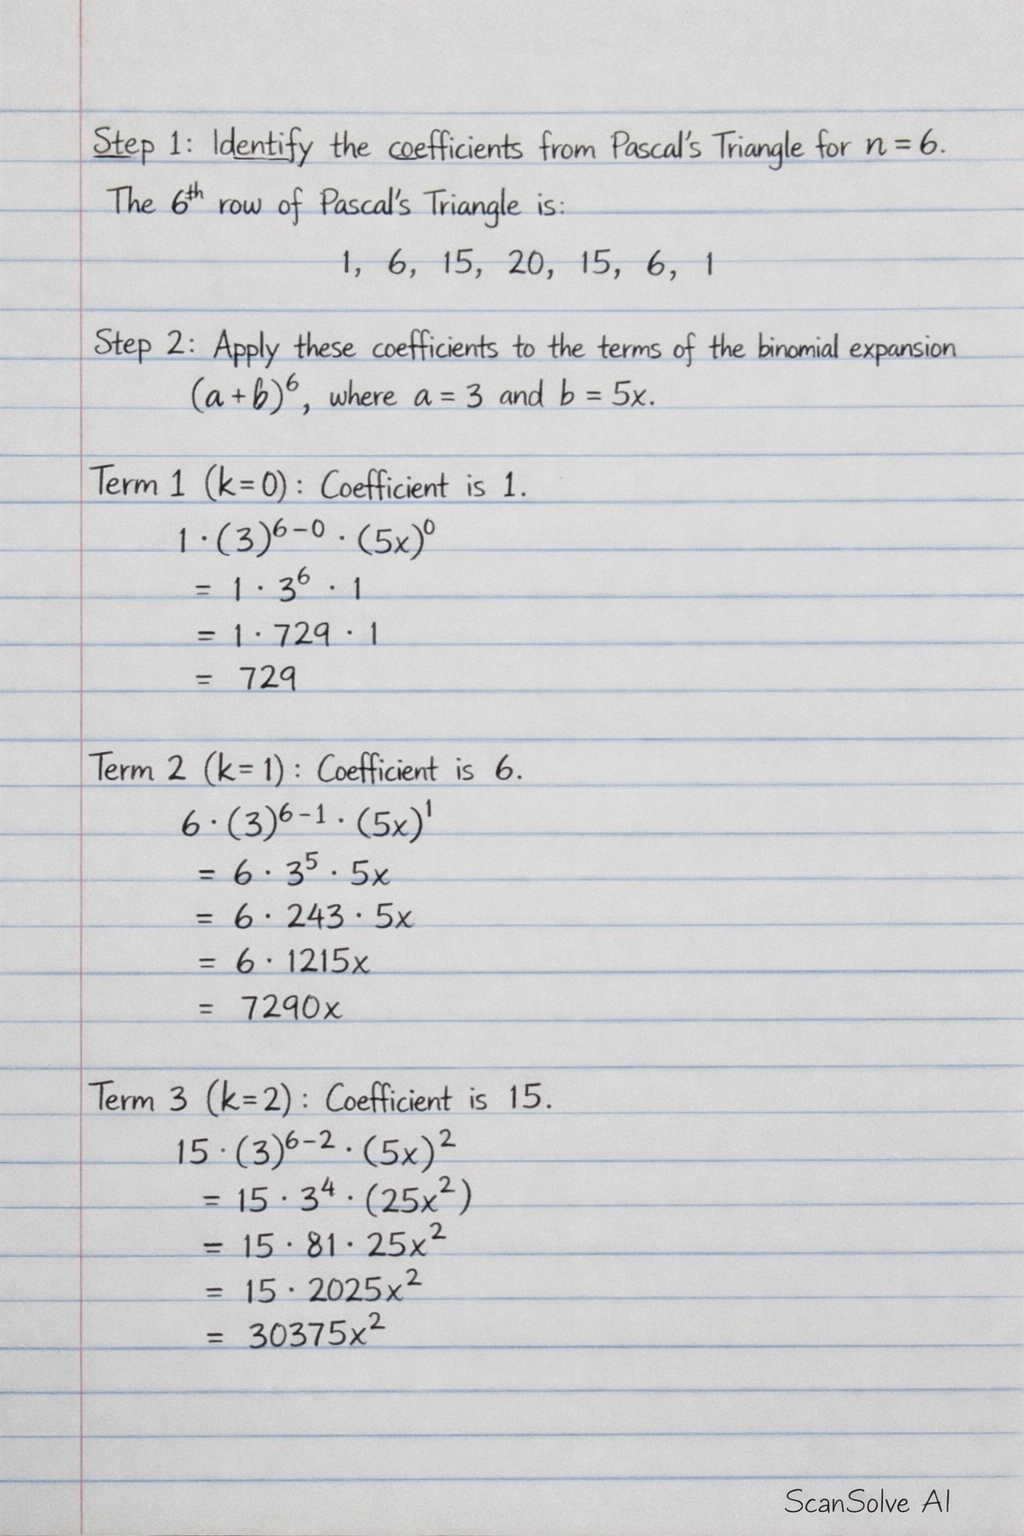 Step 1: Identify the coefficients from Pascal's Triangle for n = 6.
The 6th row of Pascal's Triangle is:
1, 6, 15, 20, 15, 6, 1
Step 2: Apply these coefficients to the terms of the binomial expansion
(a+b)⁶, where a = 3 and b = 5x.
Term 1 (k=0): Coefficient is 1.
1 · (3)⁶⁻⁰ · (5x)⁰
= 1 · 3⁶ · 1
= 1 · 729 · 1
= 729
Term 2 (k=1): Coefficient is 6.
6 · (3)⁶⁻¹ · (5x)¹
= 6 · 3⁵ · 5x
= 6 · 243 · 5x
= 6 · 1215x
= 7290x
Term 3 (k=2): Coefficient is 15.
15 · (3)⁶⁻² · (5x)²
= 15 · 3⁴ · (25x²)
= 15 · 81 · 25x²
= 15 · 2025x²
= 30375x²
ScanSolve AI